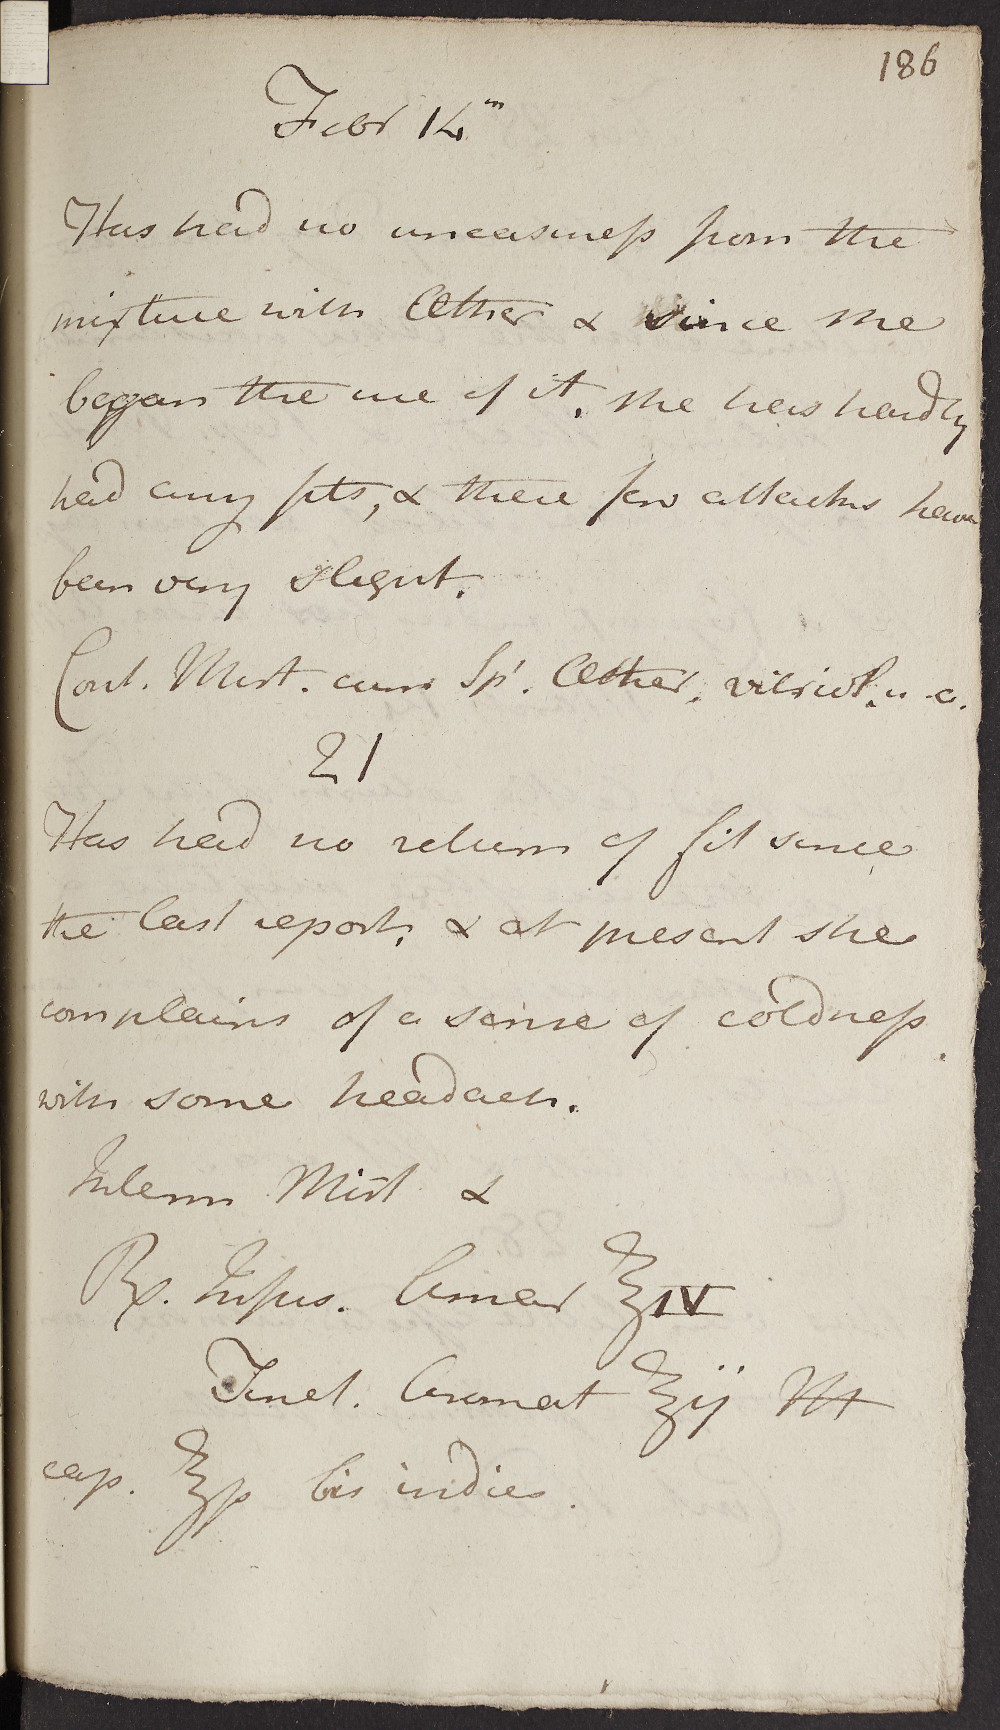 186
Febr 14th
Has had no uneasiness from the
mixture with Æther & since she
began the use of it, she has hardly
had any fits, & these few attacks have
been very slight.
Cont. Mist. cum Sp. Æther. vitriol. u. a.
21
Has had no return of fit since
the last report, & at present she
complains of a sense of coldness
with some headach.
Interm Mist &
℞. Infus. Amar ℥IV
Tinct. Aromat ʒij M
cap. ℥ß bis indies.